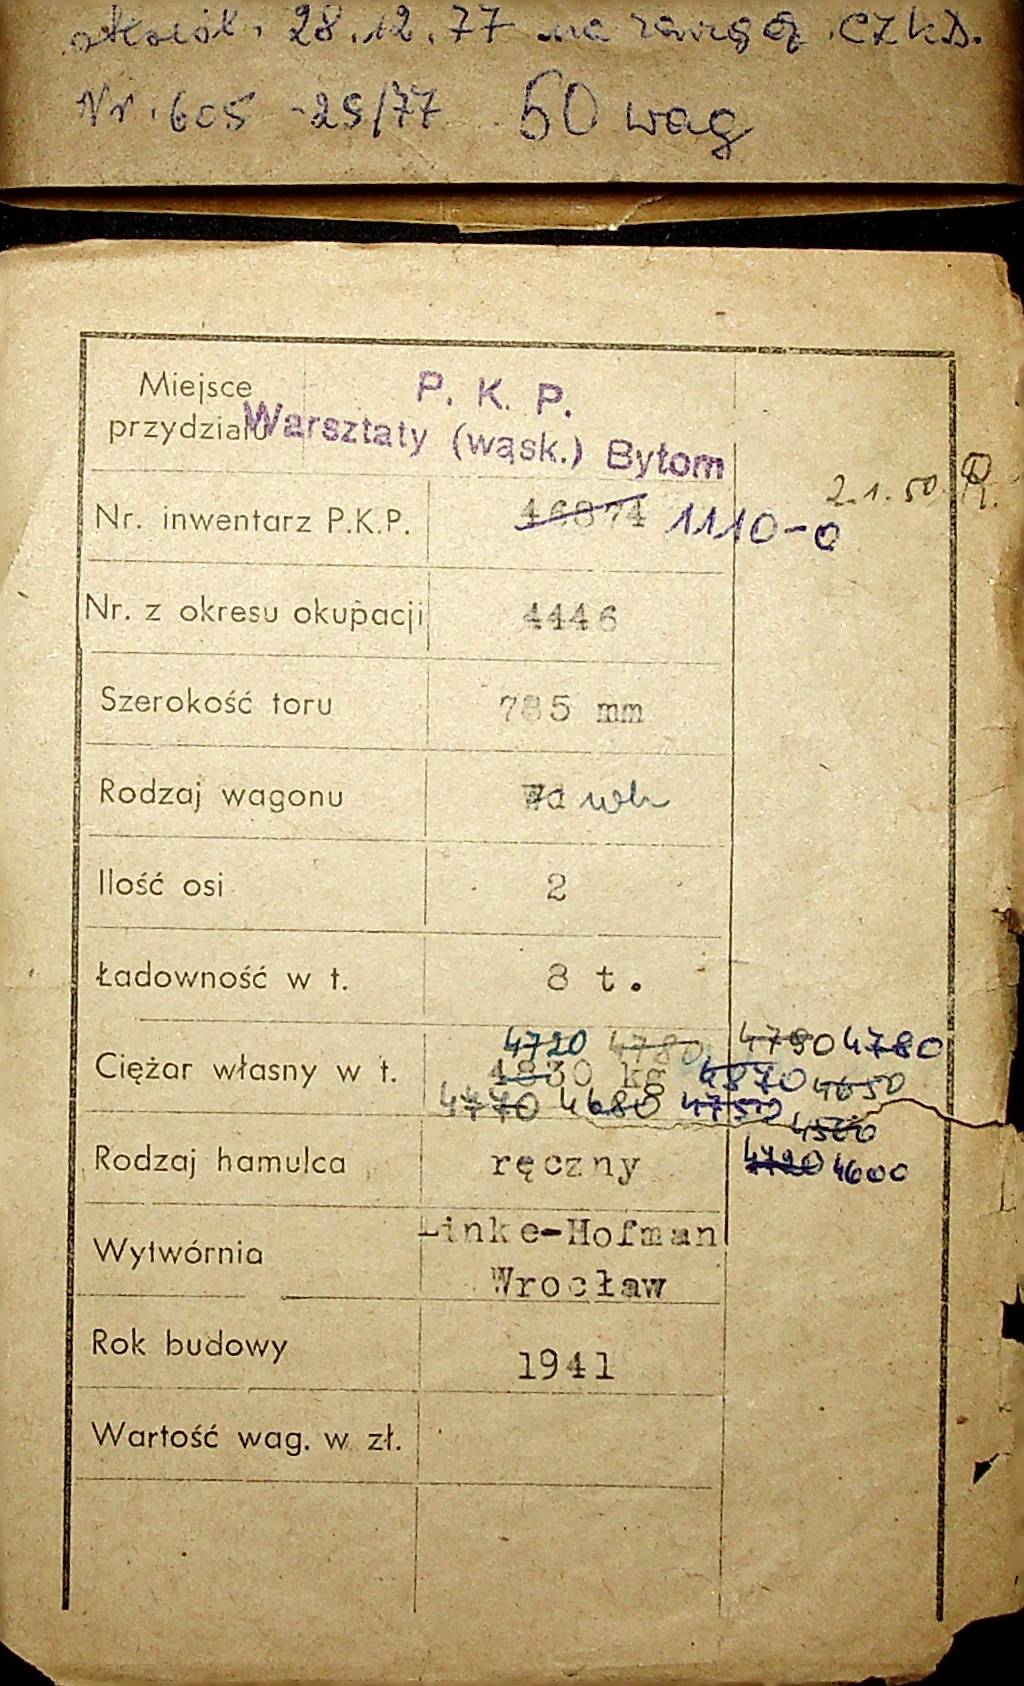 28.12.77 na
Nr. 605 -25/77 50 wag
Miejsce przydziału P. K. P.
Warsztaty (wąsk.) Bytom
2.1.50
Nr. inwentarz P.K.P. 46874 1110-0
Nr. z okresu okupacji 4446
Szerokość toru 785 mm
Rodzaj wagonu Wd
Ilość osi 2
Ładowność w t. 8 t.
4720 4780 4790 4780
Ciężar własny w t. 4830 kg 4870 4650
4470 4680 4750
4500
Rodzaj hamulca ręczny 4720 4600
Wytwórnia Linke-Hofman
Wrocław
Rok budowy 1941
Wartość wag. w zł.